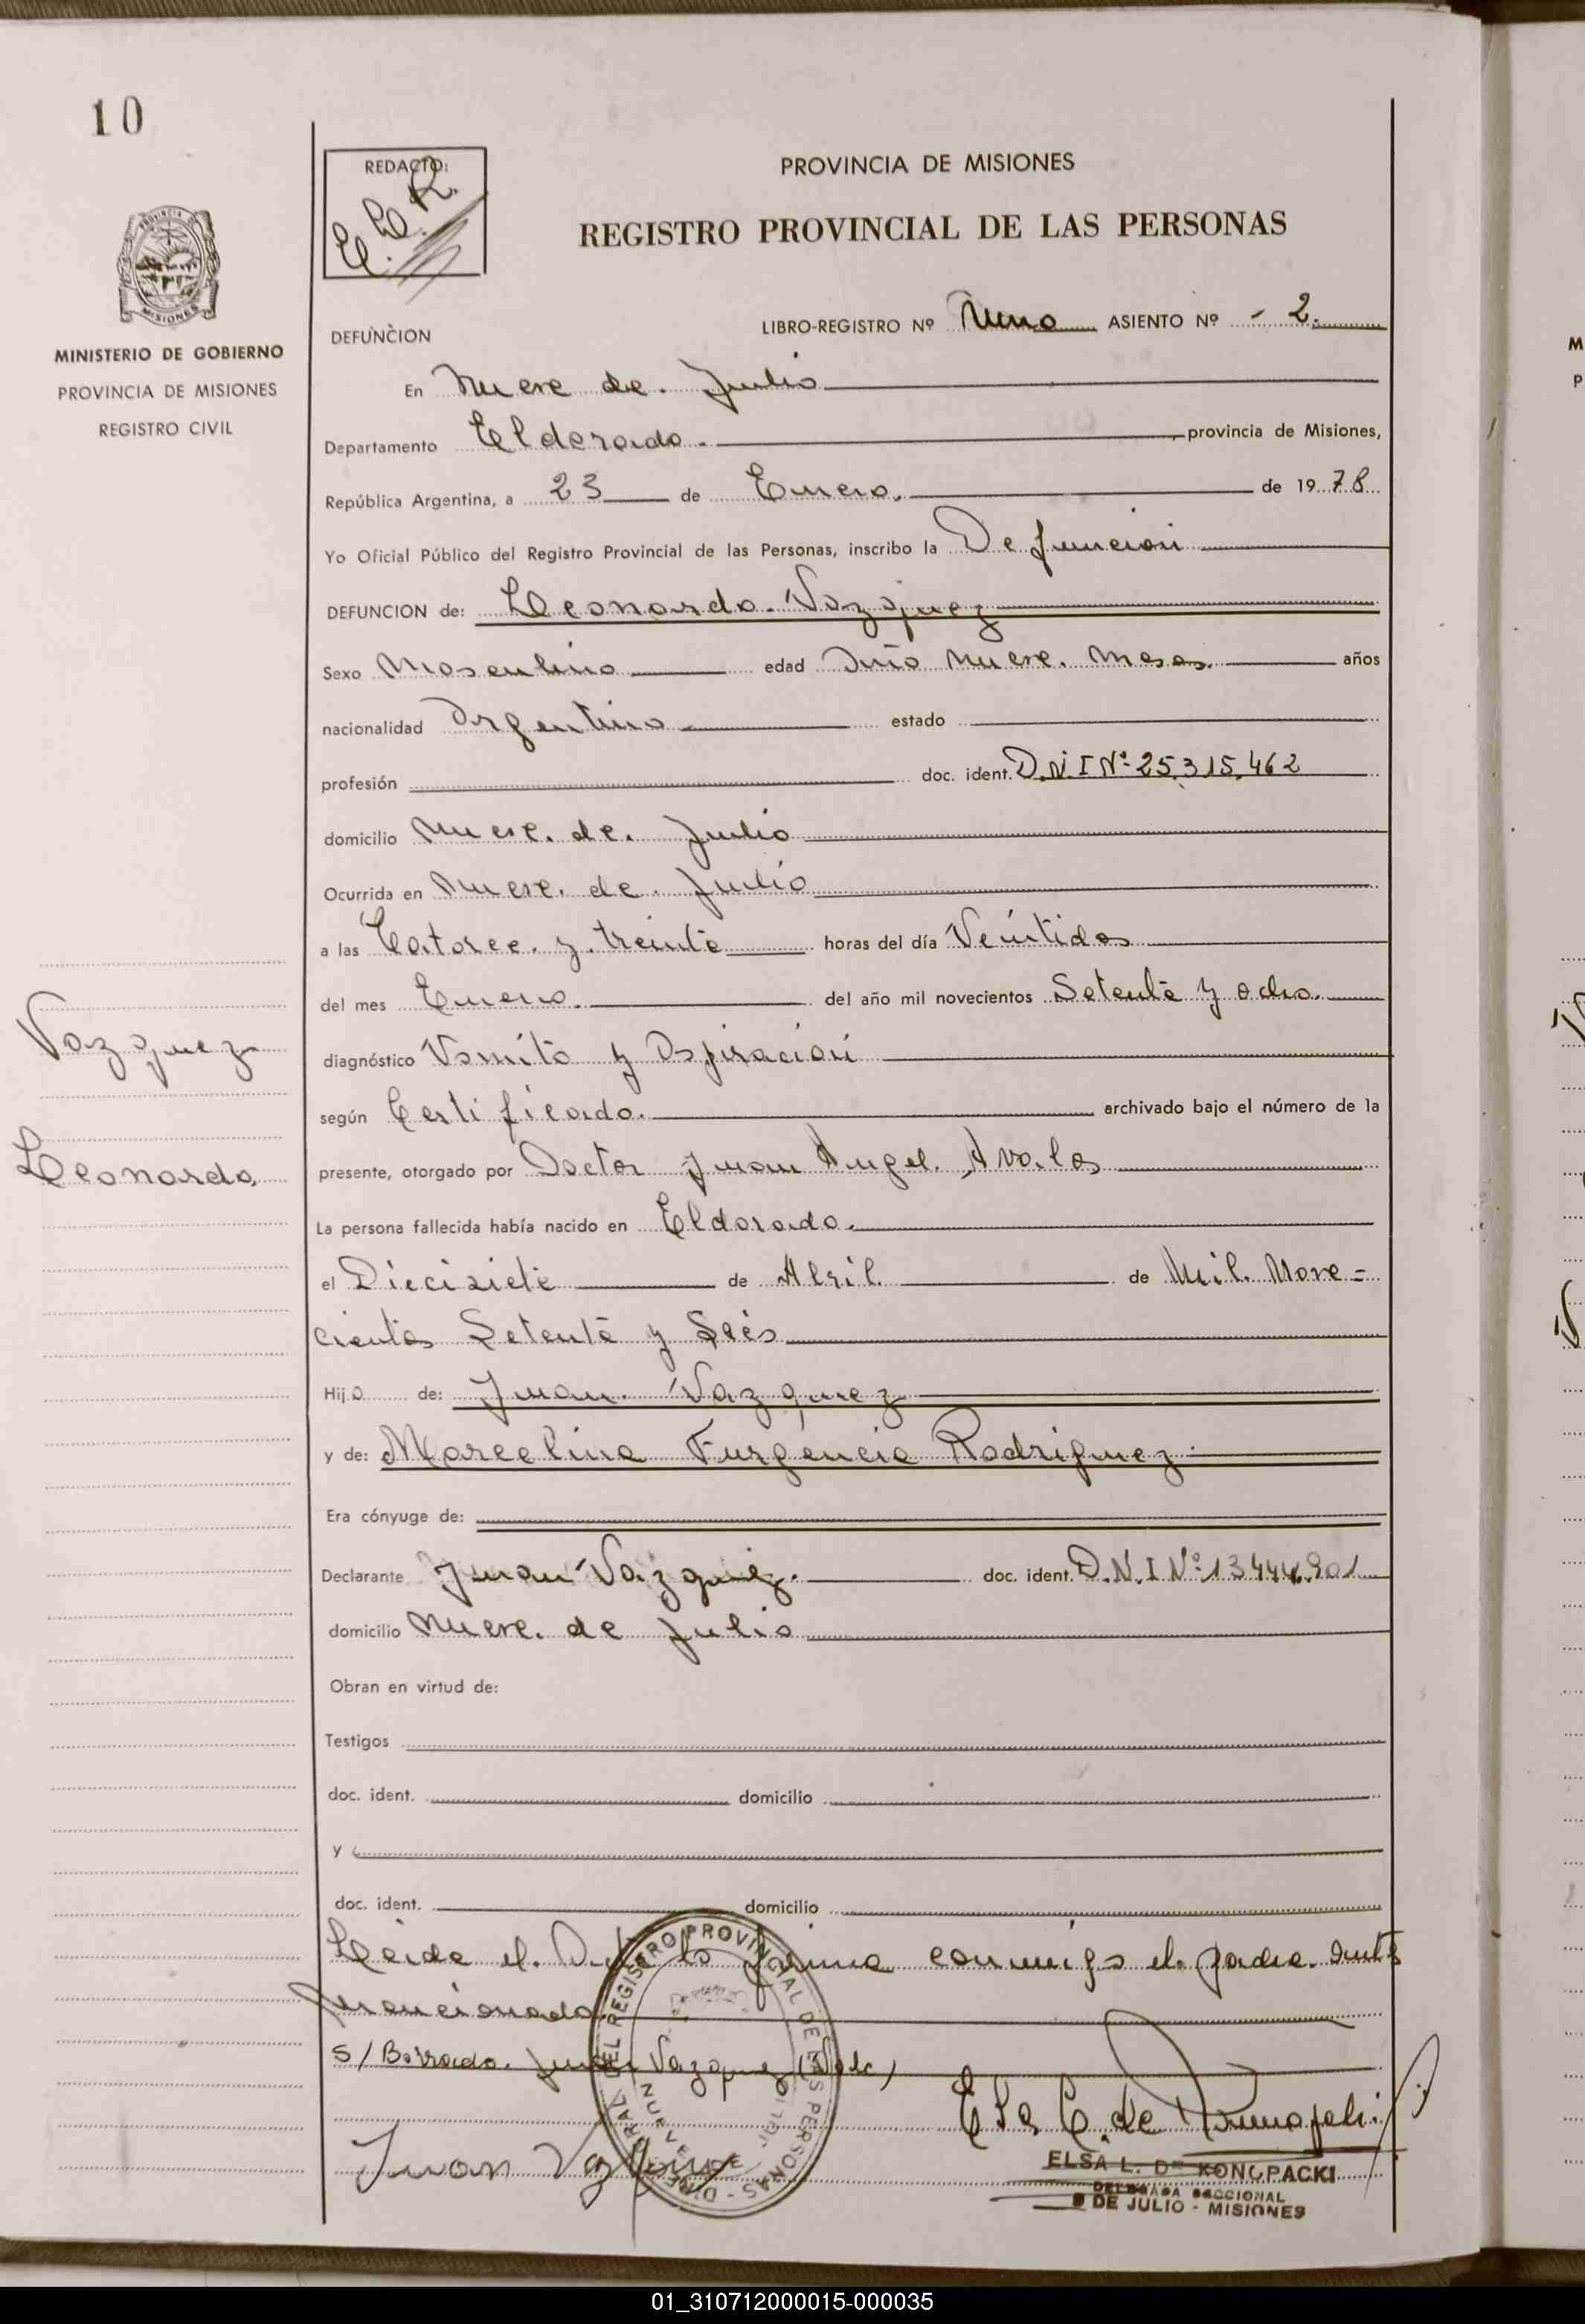 10
REDACTO:
PROVINCIA DE MISIONES
REGISTRO PROVINCIAL DE LAS PERSONAS
MISIONES
MINISTERIO DE GOBIERNO
PROVINCIA DE MISIONES
REGISTRO CIVIL
DEFUNCION
LIBRO-REGISTRO Nº Uno ASIENTO Nº - 2.
En Nueve de Julio
Departamento Eldorado. provincia de Misiones,
República Argentina, a 23 de Enero. de 1978
Yo Oficial Público del Registro Provincial de las Personas, inscribo la Defuncion
DEFUNCION de: Leonardo Vazquez
Sexo Masculino edad Año Nueve Meses. años
nacionalidad Argentino estado
profesión doc. ident. D.N.I Nº 25.315.462
domicilio Nueve de Julio
Ocurrida en Nueve de Julio
a las Catorce y treinta horas del día Veintidos
del mes Enero. del año mil novecientos Setenta y ocho.
diagnóstico Vomito y Aspiración
según Certificado. archivado bajo el número de la
presente, otorgado por Doctor Juan Angel Avalos
La persona fallecida había nacido en Eldorado.
el Diecisiete de Abril. de Mil Nove=
cientos Setenta y Seis
Hijo de: Juan Vazquez
y de: Marcelina Furgencia Rodriguez
Era cónyuge de:
Declarante Juan Vazquez. doc. ident. D.N.I Nº 13444.901
domicilio Nueve de Julio
Obran en virtud de:
Testigos
doc. ident. domicilio
y
doc. ident. domicilio
Leida el Acta la firma conmigo el padre Antes
mencionado
S/ Borrado. Juan Vazquez (Vale)
Juan Vazquez
ELSA L. De KONOPACKI
DELEGADA SECCIONAL
9 DE JULIO - MISIONES
Vazquez
Leonardo.
01_310712000015-000035